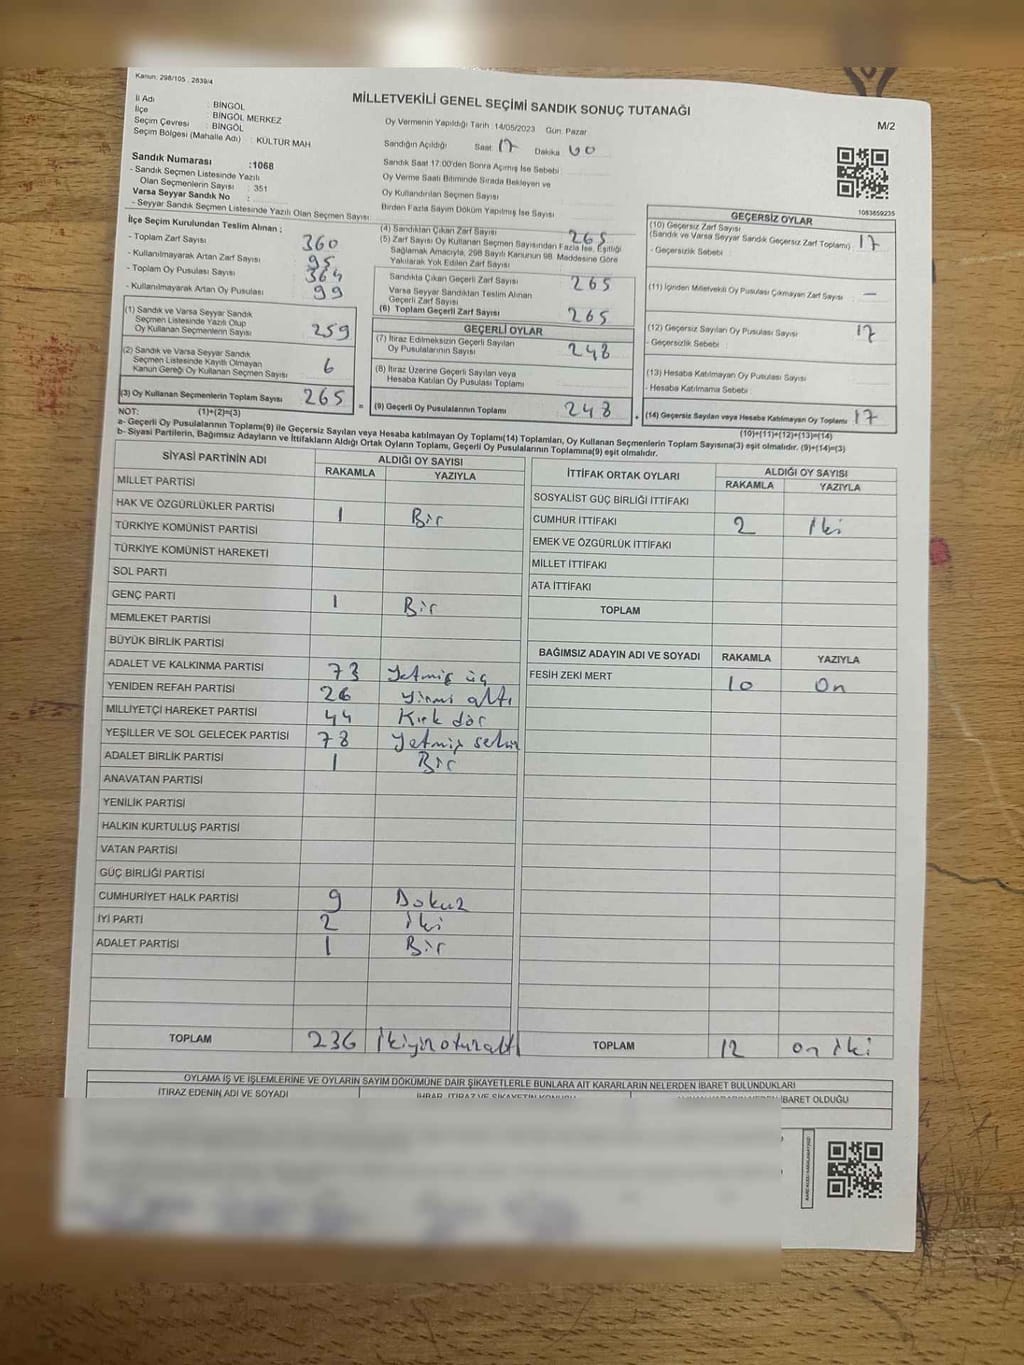 Kanun: 298/105 , 2839/4
MİLLETVEKİLİ GENEL SEÇİMİ SANDIK SONUÇ TUTANAĞI
M/2
İl Adı : BİNGÖL
İlçe : BİNGÖL MERKEZ
Seçim Çevresi : BİNGÖL
Seçim Bölgesi (Mahalle Adı) : KÜLTÜR MAH
Sandık Numarası :1068
- Sandık Seçmen Listesinde Yazılı
Olan Seçmenlerin Sayısı : 351
Varsa Seyyar Sandık No :
- Seyyar Sandık Seçmen Listesinde Yazılı Olan Seçmen Sayısı:
Oy Vermenin Yapıldığı Tarih :14/05/2023 Gün: Pazar
Sandığın Açıldığı Saat 17 Dakika 00
Sandık Saat 17:00'den Sonra Açımış İse Sebebi:
Oy Verme Saati Bitiminde Sırada Bekleyen ve
Oy Kullandırılan Seçmen Sayısı
Birden Fazla Sayım Döküm Yapılmış İse Sayısı
1083859235
İlçe Seçim Kurulundan Teslim Alınan ;
- Toplam Zarf Sayısı 360
- Kullanılmayarak Artan Zarf Sayısı 95
- Toplam Oy Pusulası Sayısı 364
- Kullanılmayarak Artan Oy Pusulası 99
(1) Sandık ve Varsa Seyyar Sandık
Seçmen Listesinde Yazılı Olup
Oy Kullanan Seçmenlerin Sayısı 259
(2) Sandık ve Varsa Seyyar Sandık
Seçmen Listesinde Kayıtlı Olmayan
Kanun Gereği Oy Kullanan Seçmen Sayısı 6
(3) Oy Kullanan Seçmenlerin Toplam Sayısı 265
(4) Sandıktan Çıkan Zarf Sayısı 265
(5) Zarf Sayısı Oy Kullanan Seçmen Sayısından Fazla İse, Eşitliği
Sağlamak Amacıyla, 298 Sayılı Kanunun 98. Maddesine Göre
Yakılarak Yok Edilen Zarf Sayısı
Sandıkta Çıkan Geçerli Zarf Sayısı 265
Varsa Seyyar Sandıktan Teslim Alınan
Geçerli Zarf Sayısı
(6) Toplam Geçerli Zarf Sayısı 265
GEÇERLİ OYLAR
(7) İtiraz Edilmeksizin Geçerli Sayılan
Oy Pusulalarının Sayısı 248
(8) İtiraz Üzerine Geçerli Sayılan veya
Hesaba Katılan Oy Pusulası Toplamı
= (9) Geçerli Oy Pusulalarının Toplamı 248
GEÇERSİZ OYLAR
(10) Geçersiz Zarf Sayısı
(Sandık ve Varsa Seyyar Sandık Geçersiz Zarf Toplamı) 17
- Geçersizlik Sebebi
(11) İçinden Milletvekili Oy Pusulası Çıkmayan Zarf Sayısı : -
(12) Geçersiz Sayılan Oy Pusulası Sayısı 17
- Geçersizlik Sebebi
(13) Hesaba Katılmayan Oy Pusulası Sayısı
- Hesaba Katılmama Sebebi
+ (14) Geçersiz Sayılan veya Hesaba Katılmayan Oy Toplamı 17
NOT: (1)+(2)=(3)
(10)+(11)+(12)+(13)=(14)
a- Geçerli Oy Pusulalarının Toplamı(9) ile Geçersiz Sayılan veya Hesaba katılmayan Oy Toplamı(14) Toplamları, Oy Kullanan Seçmenlerin Toplam Sayısına(3) eşit olmalıdır. (9)+(14)=(3)
b- Siyasi Partilerin, Bağımsız Adayların ve İttifakların Aldığı Ortak Oyların Toplamı, Geçerli Oy Pusulalarının Toplamına(9) eşit olmalıdır.
SİYASİ PARTİNİN ADI ALDIĞI OY SAYISI
RAKAMLA YAZIYLA
MİLLET PARTİSİ
HAK VE ÖZGÜRLÜKLER PARTİSİ 1 Bir
TÜRKİYE KOMÜNİST PARTİSİ
TÜRKİYE KOMÜNİST HAREKETİ
SOL PARTİ
GENÇ PARTİ 1 Bir
MEMLEKET PARTİSİ
BÜYÜK BİRLİK PARTİSİ
ADALET VE KALKINMA PARTİSİ 73 Yetmiş üç
YENİDEN REFAH PARTİSİ 26 Yirmi altı
MİLLİYETÇİ HAREKET PARTİSİ 44 Kırk dör
YEŞİLLER VE SOL GELECEK PARTİSİ 78 Yetmiş sekiz
ADALET BİRLİK PARTİSİ 1 Bir
ANAVATAN PARTİSİ
YENİLİK PARTİSİ
HALKIN KURTULUŞ PARTİSİ
VATAN PARTİSİ
GÜÇ BİRLİĞİ PARTİSİ
CUMHURİYET HALK PARTİSİ 9 Dokuz
İYİ PARTİ 2 iki
ADALET PARTİSİ 1 Bir
TOPLAM 236
İTTİFAK ORTAK OYLARI ALDIĞI OY SAYISI
RAKAMLA YAZIYLA
SOSYALİST GÜÇ BİRLİĞİ İTTİFAKI
CUMHUR İTTİFAKI 2 iki
EMEK VE ÖZGÜRLÜK İTTİFAKI
MİLLET İTTİFAKI
ATA İTTİFAKI
TOPLAM
BAĞIMSIZ ADAYIN ADI VE SOYADI RAKAMLA YAZIYLA
FESİH ZEKİ MERT 10 On
TOPLAM 12 on iki
OYLAMA İŞ VE İŞLEMLERİNE VE OYLARIN SAYIM DÖKÜMÜNE DAİR ŞİKAYETLERLE BUNLARA AİT KARARLARIN NELERDEN İBARET BULUNDUKLARI
İTİRAZ EDENİN ADI VE SOYADI
İBARET OLDUĞU